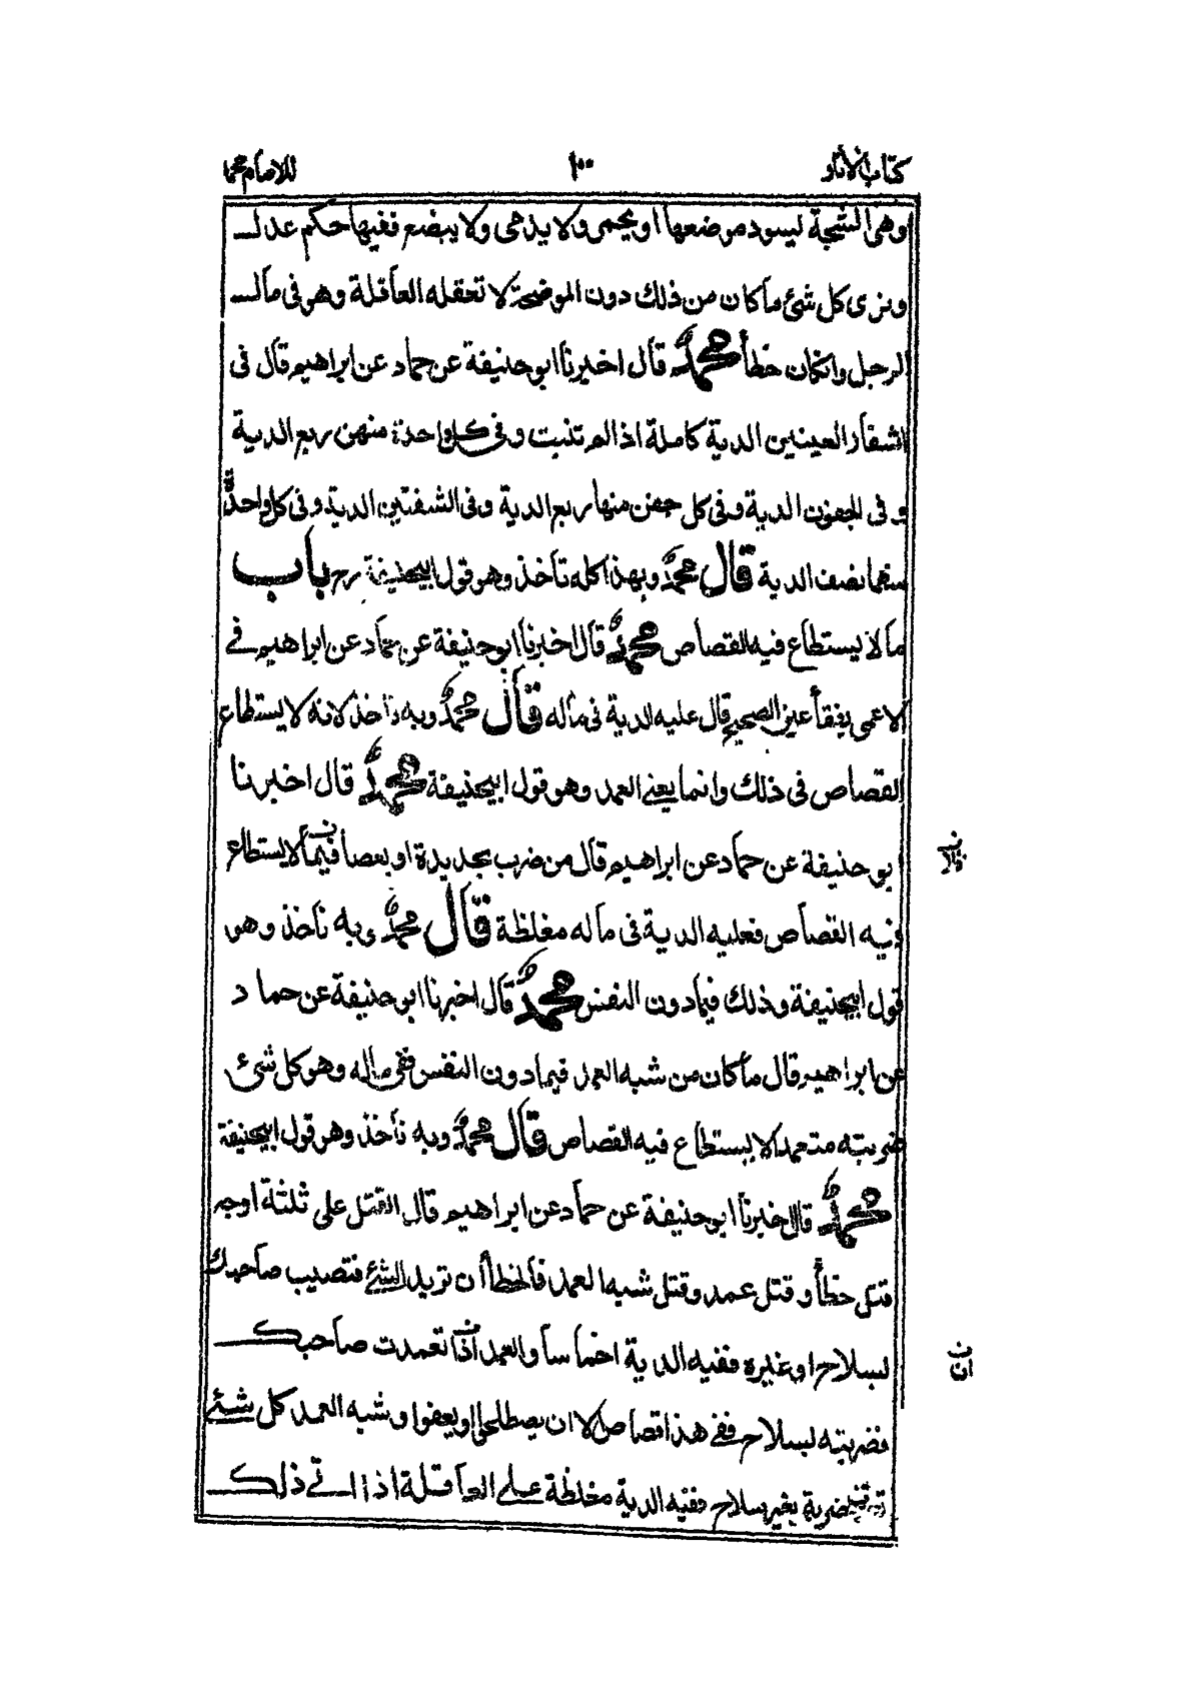 كتاب الآثار ١٠٠ للامام محمد
اوهى الشجة ليسود موضعها او يحمر ولا يدمى ولا يبضع ففيها حكم عدل
ونرى كل شئ ما كان من ذلك دون الموضحة لا تعقله العاقلة وهو فى مال
الرجل وان كان خطأ محمد قال اخبرنا ابو حنيفة عن حماد عن ابراهيم قال فى
اشفار العينين الدية كاملة اذا لم تنبت وفى كل واحدة منهن ربع الدية
و فى الجفون الدية وفى كل جفن منها ربع الدية وفى الشفتين الدية وفى كل واحدة
منهما نصف الدية قال محمد وبهذا كله نأخذ وهو قول ابيحنيفة رح باب
ما لا يستطاع فيه القصاص محمد قال اخبرنا ابو حنيفة عن حماد عن ابراهيم فى
الاعمى يفقأ عين الصحيح قال عليه الدية فى ماله قال محمد وبه نأخذ لانه لا يستطاع
القصاص فى ذلك وانما يعنى العمد وهو قول ابيحنيفة محمد قال اخبرنا
ابو حنيفة عن حماد عن ابراهيم قال من ضرب بحديدة او بعصا فيما لا يستطاع
فيه القصاص فعليه الدية فى ماله مغلظة قال محمد وبه نأخذ وهو
قول ابيحنيفة وذلك فيما دون النفس محمد قال اخبرنا ابو حنيفة عن حماد
عن ابراهيم قال ما كان من شبه العمد فيما دون النفس ففى ماله وهو كل شئ
ضربته متعمدا لا يستطاع فيه القصاص قال محمد وبه نأخذ وهو قول ابيحنيفة
محمد قال اخبرنا ابو حنيفة عن حماد عن ابراهيم قال القتل على ثلثة اوجه
قتل خطأ وقتل عمد وقتل شبه العمد فالخطأ ان تريد الشئ فتصيب صاحبك
بسلاح او غيره ففيه الدية اخماسا والعمد اذا تعمدت صاحبك
فضربته بسلاح ففى هذا قصاص الا ان يصطلحوا او يعفوا وشبه العمد كل شئ
ضربه بغير سلاح ففيه الدية مغلظة على العاقلة اذا اتى ذلك
ن
ن
ان